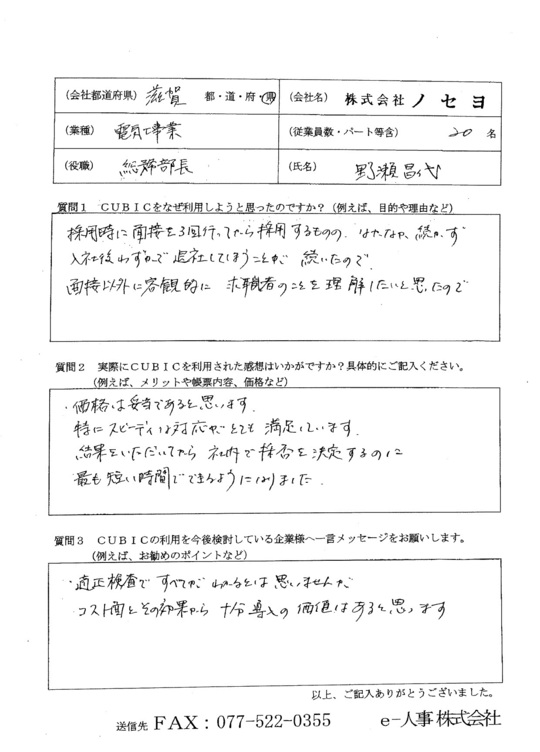 (会社都道府県) 滋賀 都・道・府・県 (会社名) 株式会社 ノセヨ
(業種) 電気工事業 (従業員数・パート等含) 20 名
(役職) 総務部長 (氏名) 野瀬昌代
質問1 CUBICをなぜ利用しようと思ったのですか?(例えば、目的や理由など)
採用時に面接を3回行ってから採用するものの、なかなか続かず
入社後わずかで退社してしまうことが続いたので、
面接以外に客観的に求職者のことを理解したいと思ったので
質問2 実際にCUBICを利用された感想はいかがですか?具体的にご記入ください。
(例えば、メリットや帳票内容、価格など)
・価格は妥当であると思います。
特にスピーディな対応がとても満足しています。
結果をいただいてから社内で採否を決定するのに
最も短い時間でできるようになりました。
質問3 CUBICの利用を今後検討している企業様へ一言メッセージをお願いします。
(例えば、お勧めのポイントなど)
・適正検査ですべてがわかるとは思いませんが
コスト面とその効果から十分導入の価値はあると思います
以上、ご記入ありがとうございました。
送信先 FAX:077-522-0355 e-人事株式会社